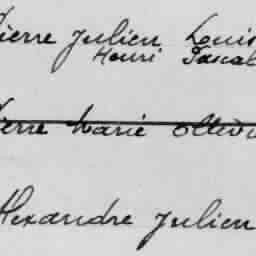 Pierre Julien Louis
Henri Pascal
Pierre Marie Ollivi
Alexandre Julien